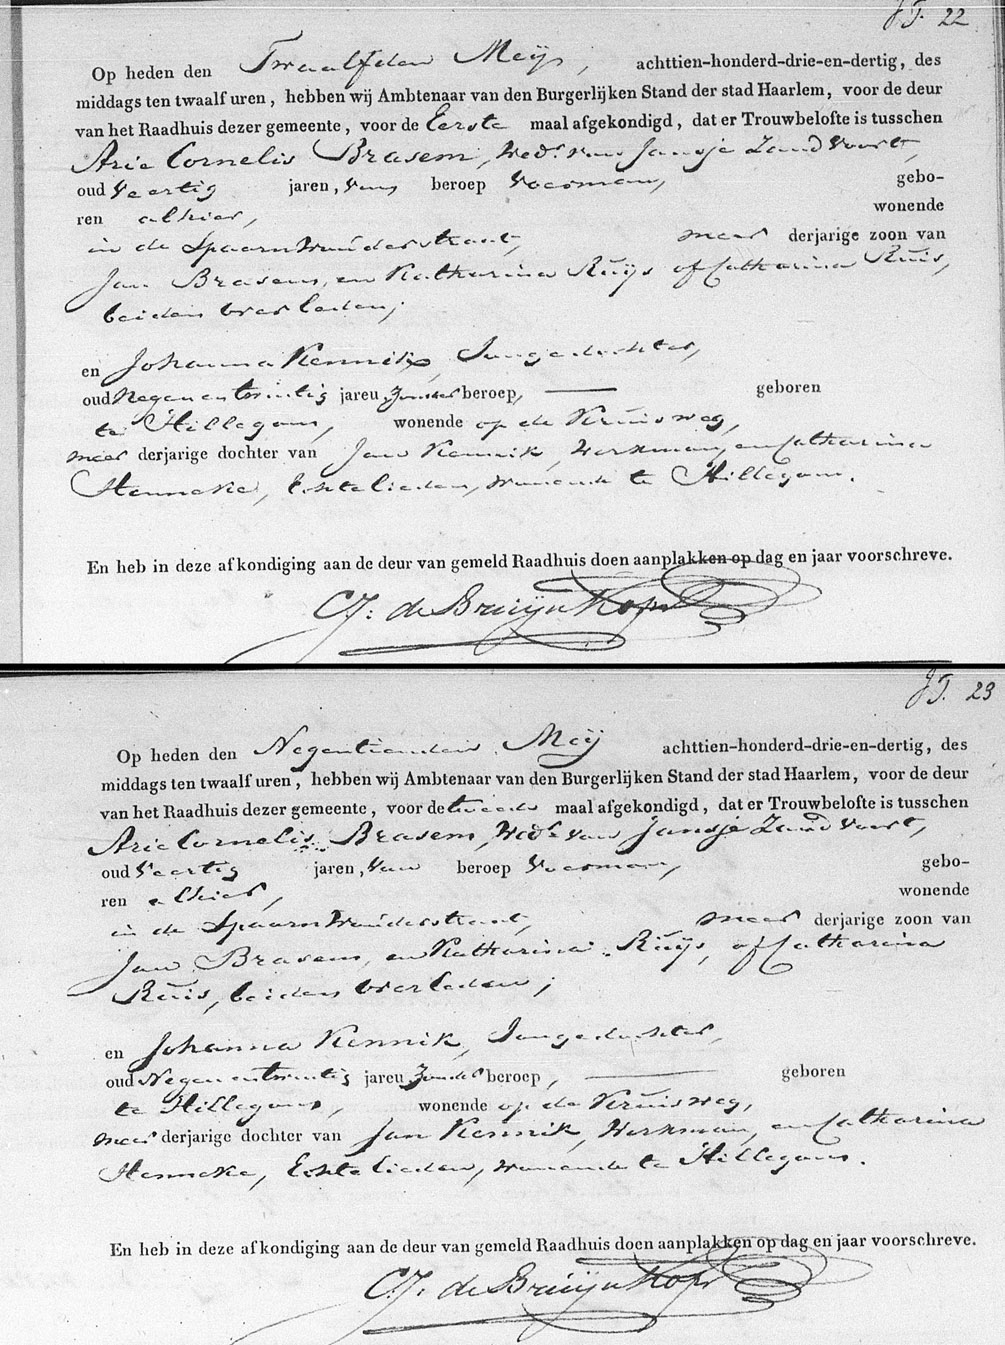 22
Op heden den Twaalfden Meij, achttien-honderd-drie-en-dertig, des
middags ten twaalf uren, hebben wij Ambtenaar van den Burgerlijken Stand der stad Haarlem, voor de deur
van het Raadhuis dezer gemeente, voor de Eerste maal afgekondigd, dat er Trouwbelofte is tusschen
Arie Cornelis Brasem, Wedr. van Jansje Zandvoort,
oud Veertig jaren, van beroep Voerman, gebo-
ren alhier, wonende
in de Spaarnwouderstraat, meer derjarige zoon van
Jan Brasem, en Katharina Ruijs of Catharina Ruis,
beiden overleden;
en Johanna Kennik, Jongedochter,
oud Negenentwintig jaren, Zonder beroep, geboren
te Hillegom, wonende op de Kruisweg,
meer derjarige dochter van Jan Kennik, Werkman, en Catharina
Henneke, Echtelieden, wonende te Hillegom.
En heb in deze afkondiging aan de deur van gemeld Raadhuis doen aanplakken op dag en jaar voorschreve.
CJ: de Bruijn Kops
23
Op heden den Negentienden Meij achttien-honderd-drie-en-dertig, des
middags ten twaalf uren, hebben wij Ambtenaar van den Burgerlijken Stand der stad Haarlem, voor de deur
van het Raadhuis dezer gemeente, voor de tweede maal afgekondigd, dat er Trouwbelofte is tusschen
Arie Cornelis Brasem, Wedr. van Jansje Zandvoort,
oud Veertig jaren, van beroep Voerman, gebo-
ren alhier, wonende
in de Spaarnwouderstraat, meer derjarige zoon van
Jan Brasem, en Katharina Ruijs, of Catharina
Ruis, beiden overleden;
en Johanna Kennik, Jongedochter,
oud Negenentwintig jaren, Zonder beroep, geboren
te Hillegom, wonende op de Kruisweg,
meer derjarige dochter van Jan Kennik, Werkman, en Catharina
Henneke, Echtelieden, wonende te Hillegom.
En heb in deze afkondiging aan de deur van gemeld Raadhuis doen aanplakken op dag en jaar voorschreve.
C.J. de Bruijn Kops